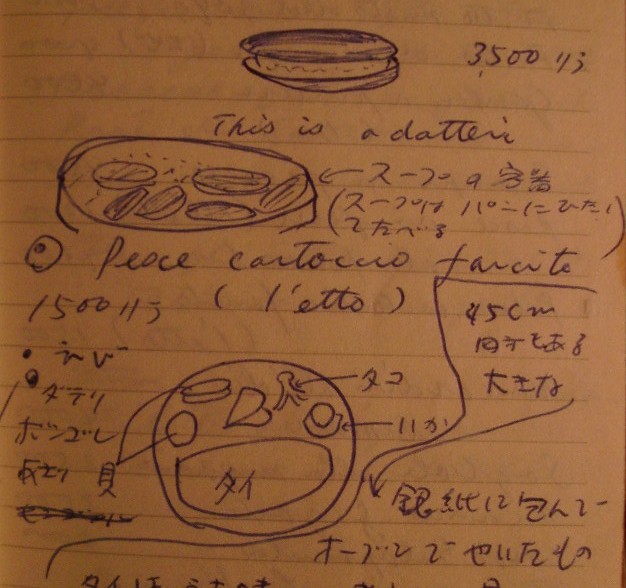 3,500リラ
This is a datteri
←スープの容器
(スープは パンにひたし
てたべる)
Pesce cartoccio farcito
1500リラ ( l'etto )
45cm
円子もある
大きな
・えび
タコ
・ダテリ
ボンゴレ
いか
貝
タイ
銀紙に包んで
オーブンで やいたもの
タイは